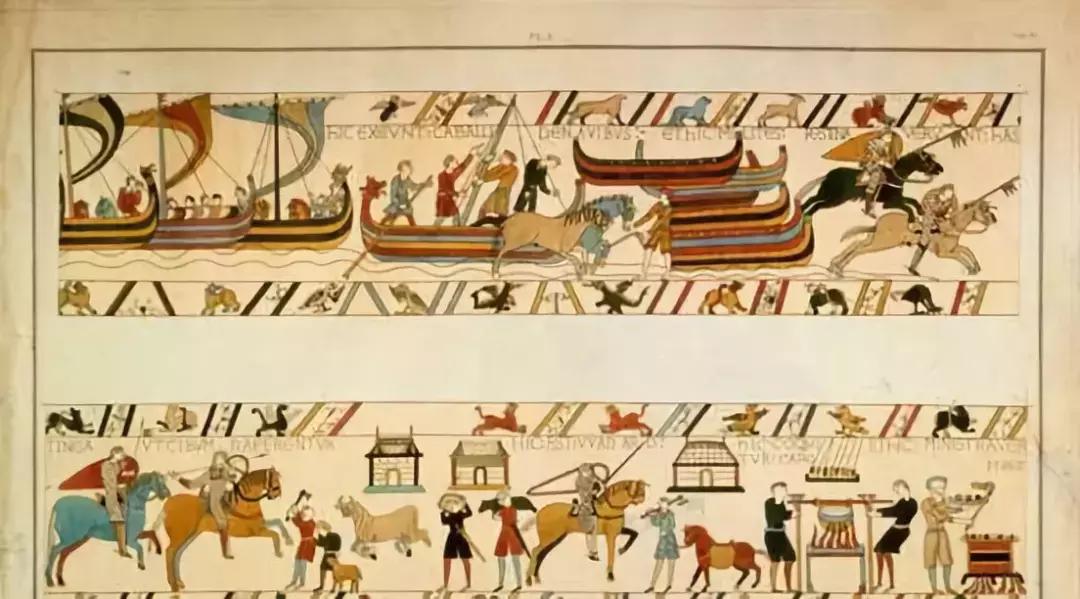 HIC EXEVNT CABALLI DENAVIBVS: ETHIC MILITES: FESTINA VERVNT HAS
TINGA VT CIBVM RAPERENTVR HIC EST VVADARD: HIC COQVI
TVR CARO ETHIC MINISTRAVER